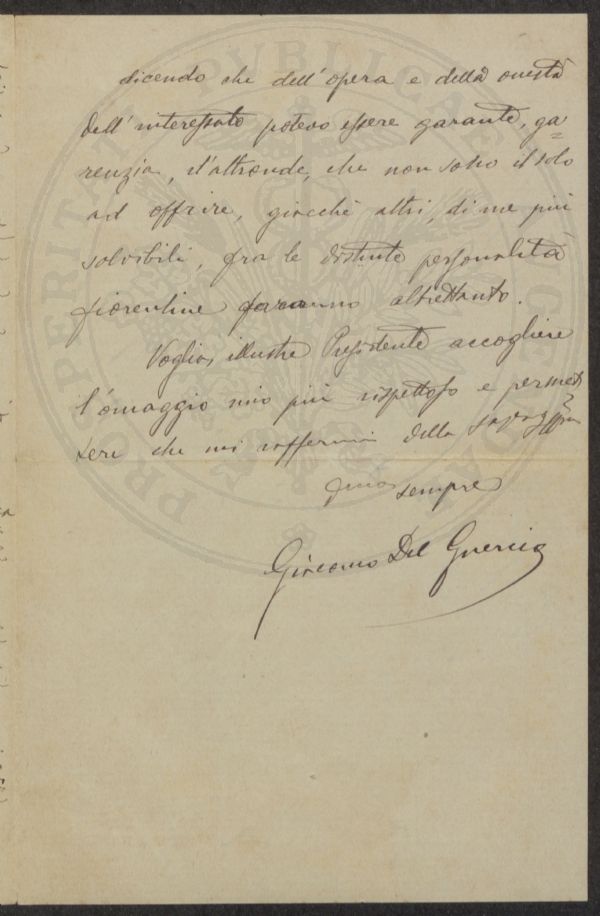 dicendo che dell'opera e della onestà
dell'interessato potevo essere garante, ga=
renzia, d'altronde, che non sono il solo
ad offrire, giacchè altri, di me più
solvibili, fra le distinte personalità
fiorentine faranno altrettanto.
Voglia, illustre Presidente accogliere
l'omaggio mio più rispettoso e permet
tere che mi raffermi della
sempre
Giacomo Del Guercio
PRO VERITATE
PVBLICAE